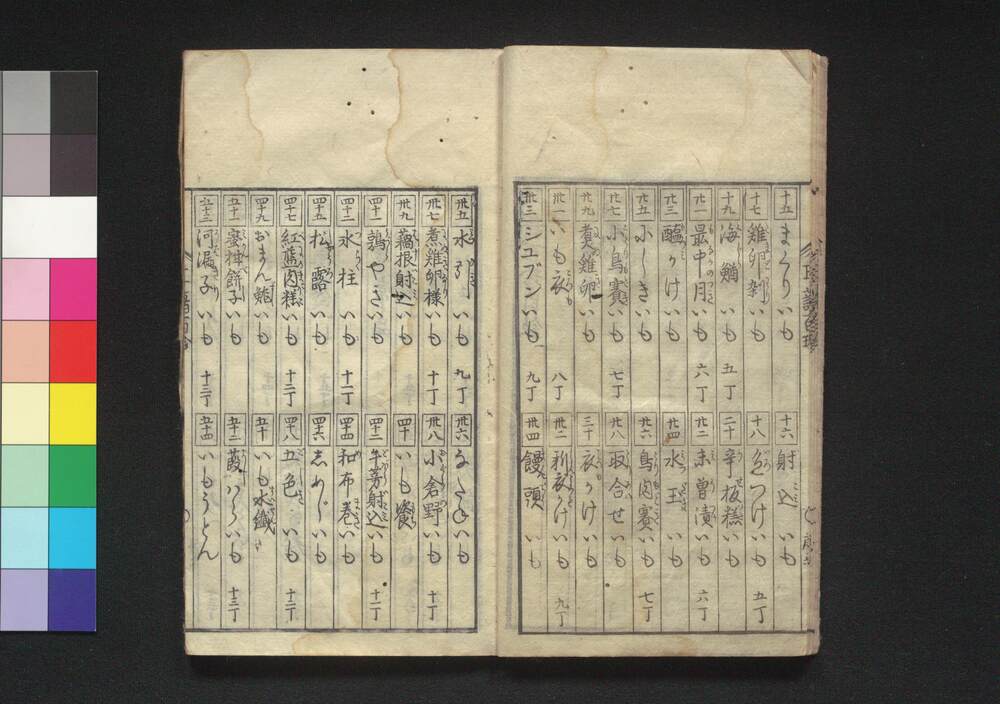 十五 まくりいも
十六 射込いも
十七 雞卵剎いも
十八 くつけいも 五丁
十九 海鰌いも 五丁
二十 辛板糕いも
廿一 最中月いも 六丁
廿二 未曽漬いも 六丁
廿三 醢かけいも
廿四 水玉いも
廿五 にしきいも
廿六 鳥肉賽いも 七丁
廿七 小鳥賽いも 七丁
廿八 取合せいも
廿九 羹雞卵いも
三十 衣かけいも
卅一 いも衣 八丁
卅二 利衣かけいも 九丁
卅三 シユブンいも 九丁
卅四 饅頭いも
卅五 水引いも 九丁
卅六 いも
卅七 煮雞卵様いも 十丁
卅八 小倉野いも 十丁
卅九 藕根射込いも
四十 いも飱
四十一 鶉やきいも
四十二 牛蒡射込いも 十一丁
四十三 氷柱いも 十一丁
四十四 和布巻いも
四十五 松露いも
四十六 志めじいも
四十七 紅熊肉糕いも 十二丁
四十八 五色いも 十二丁
四十九 おまん鮓いも
五十 いも水纎
五十一 蜜揮餅子いも
五十二 葭いも 十三丁
五十三 河漏子いも 十三丁
五十四 いもうとん